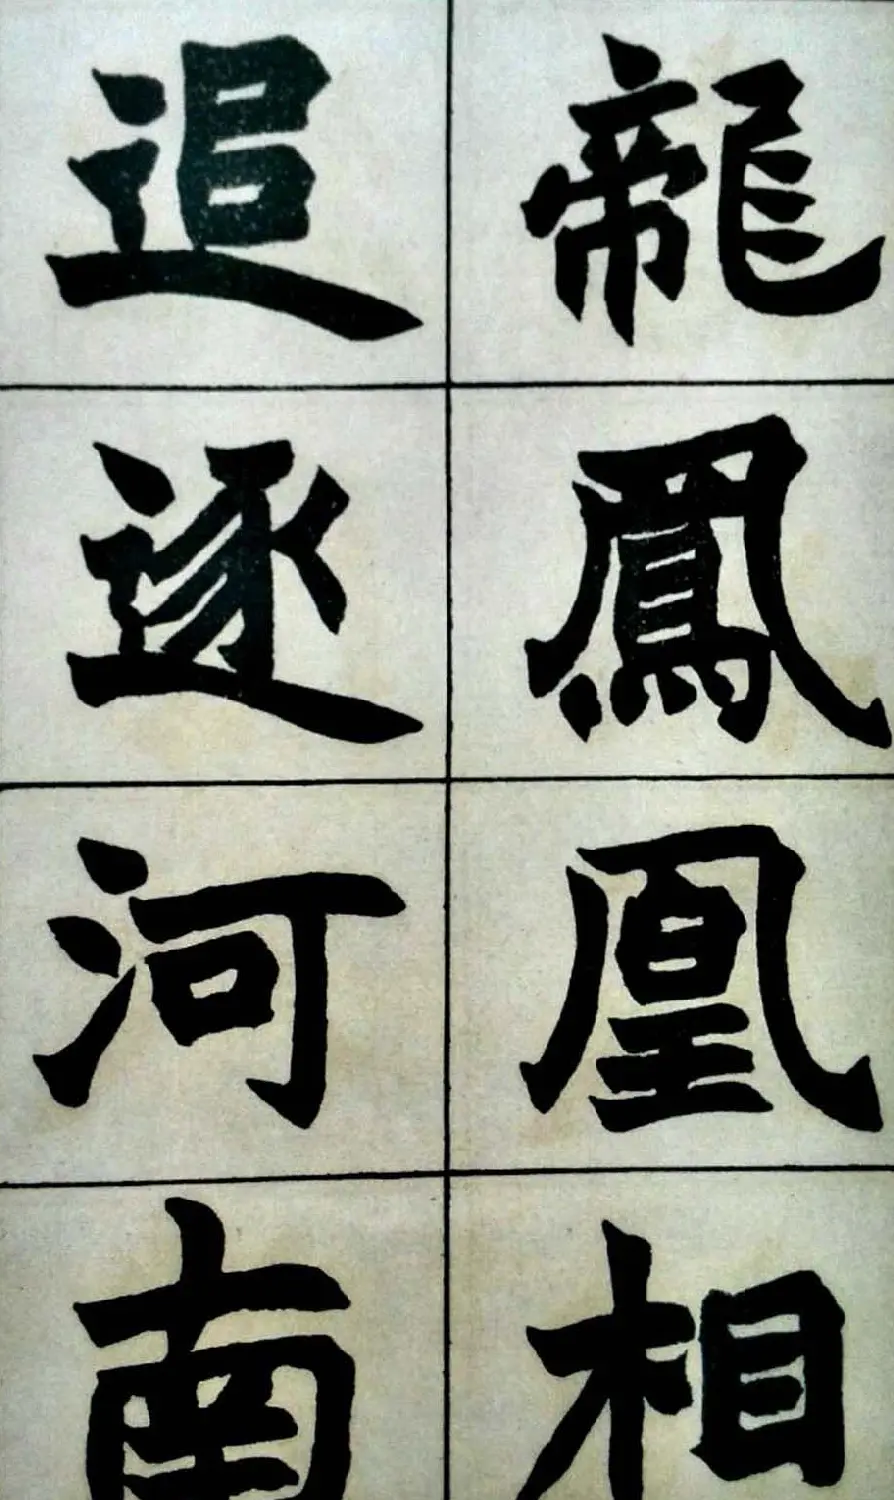 龍鳳凰相
追逐河南